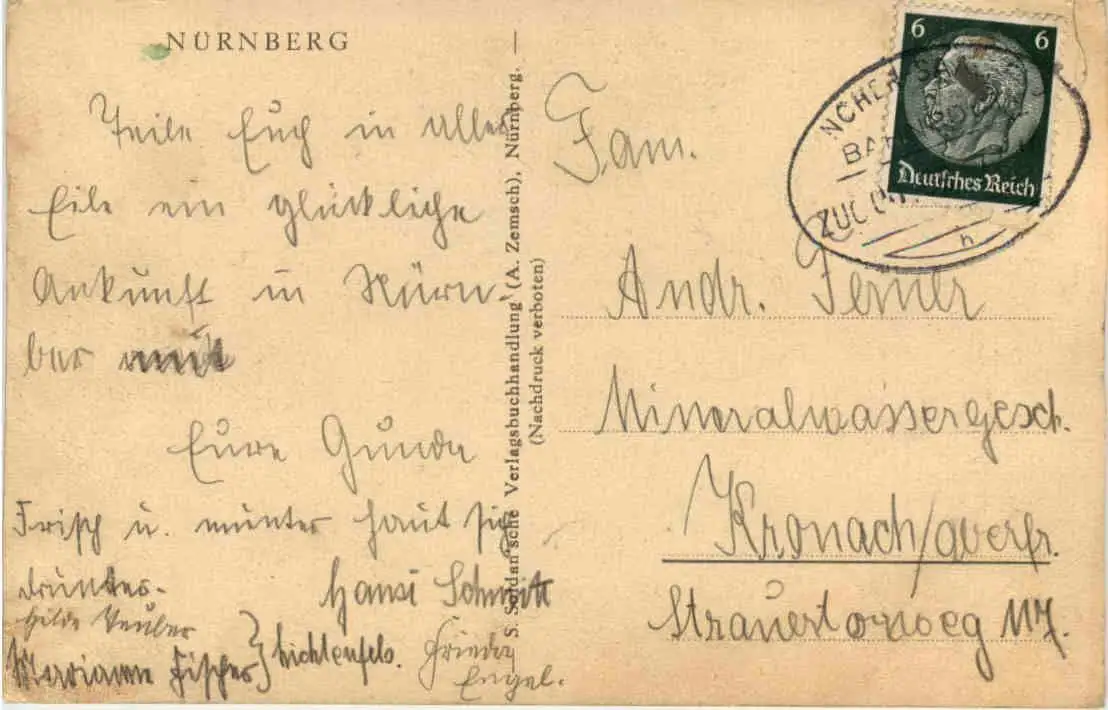 NÜRNBERG
Teile Euch in aller
Eile ein glückliche
Ankunft in Nürn-
ber mit
Eure Gunda
Frisch u. munter haut sich
drunter.
Hansi Schmitt
Hilde Teuber
Marianne Fischer } Lichtenfels.
Frieda
Engel.
S. Soldan'sche Verlagsbuchhandlung (A. Zemsch), Nürnberg. —
(Nachdruck verboten)
6 6
Deutsches Reich
NCHEN
BA
ZUG
h
Fam.
Andr. Ferner
Mineralwassergesch.
Kronach/Oberfr.
Strauertorweg 117.